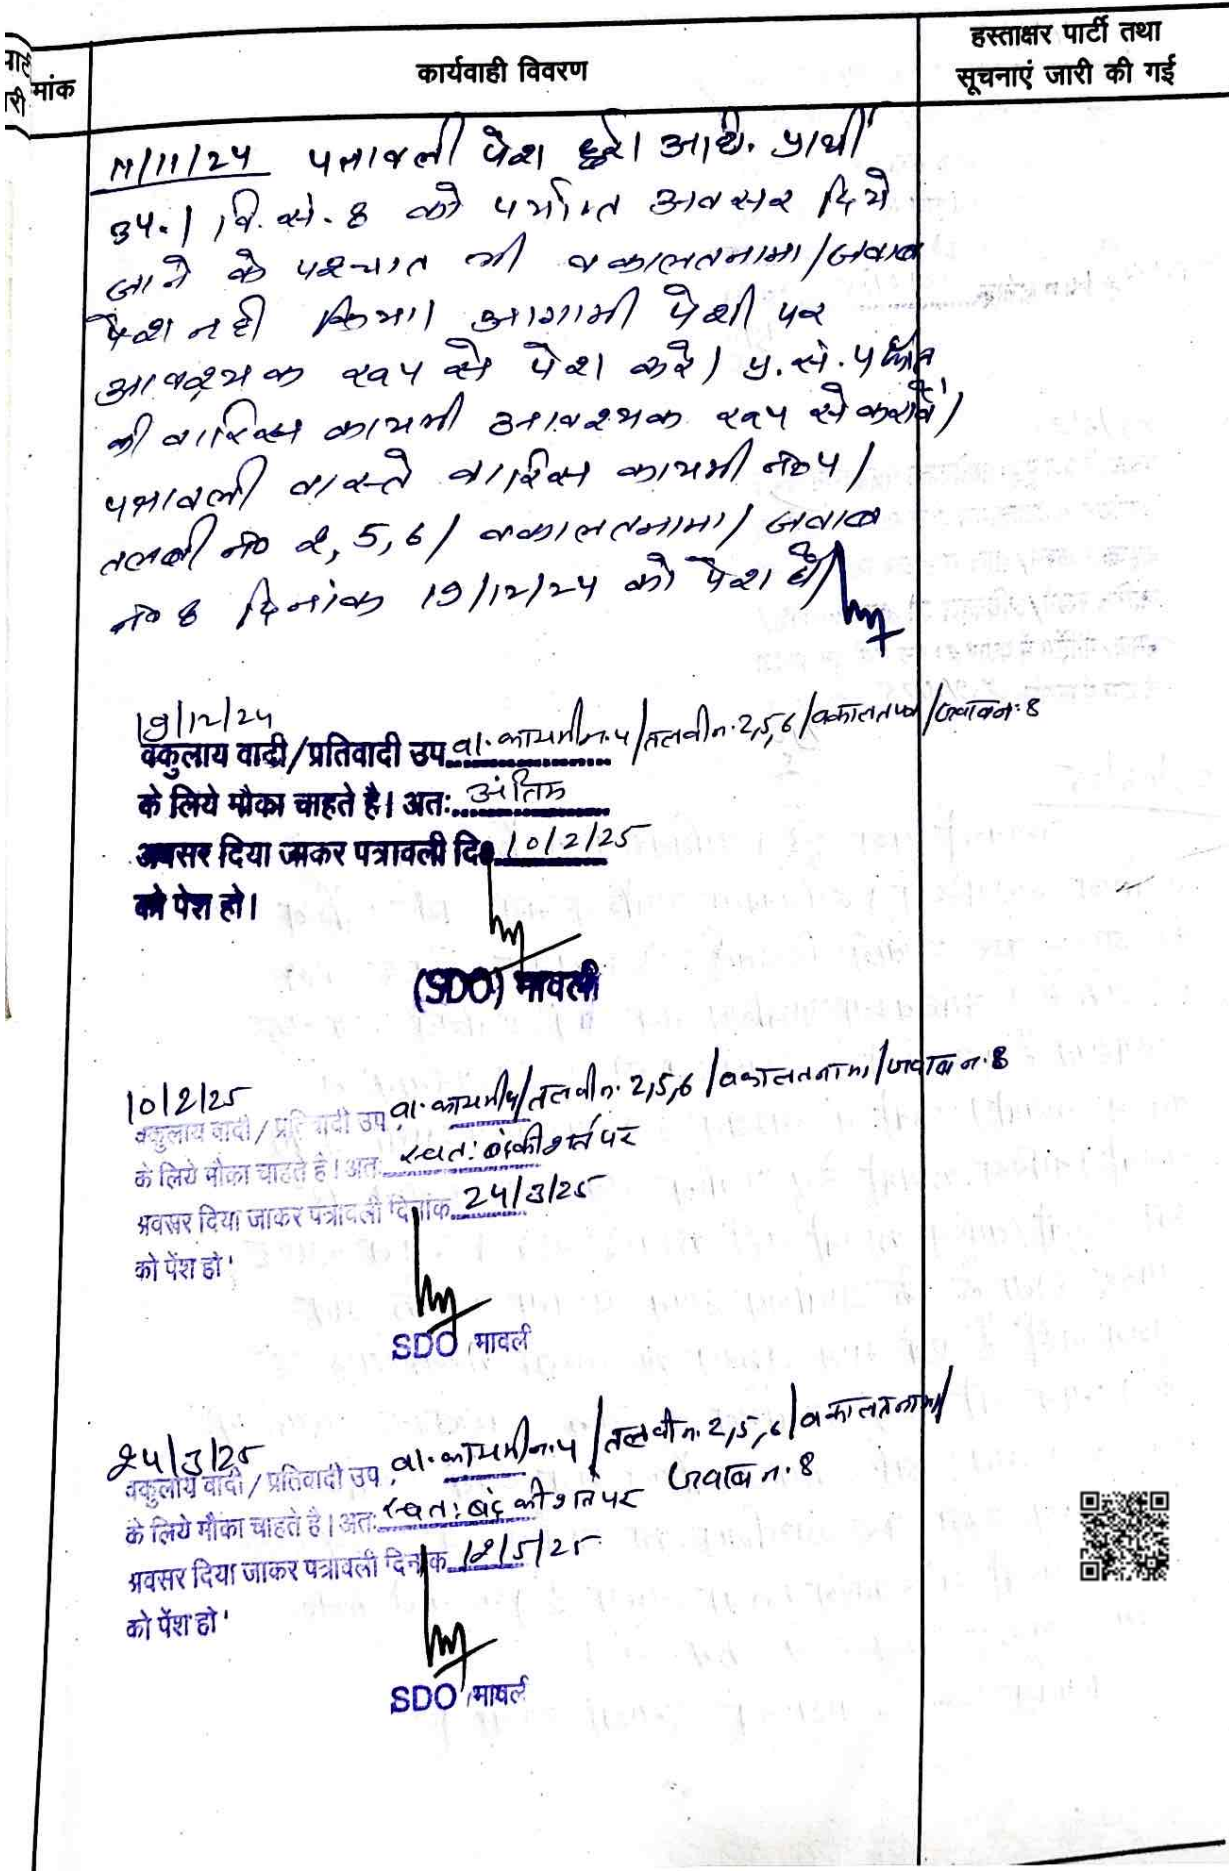 मांक
कार्यवाही विवरण
हस्ताक्षर पार्टी तथा
सूचनाएं जारी की गई
11/11/24 पत्रावली पेश हुई। अधि. प्रार्थी
उप.। वि.सं. 8 को पर्याप्त अवसर दिये
जाने के पश्चात भी वकालतनामा/जवाब
पेश नही किया। आगामी पेशी पर
आवश्यक रूप से पेश करे। प्र.सं. 4
की वारिस कायमी आवश्यक रूप से करावें।
पत्रावली वास्ते वारिस कायमी न० 4/
तलबी न० 2, 5, 6/ वकालतनामा/ जवाब
न० 8 दिनांक 19/12/24 को पेश हो/
19/12/24
वकुलाय वादी/प्रतिवादी उप वा. कायमी न. 4/तलबी न. 2,5,6/वकालतपत्र/जवाब न. 8
के लिये मौका चाहते है। अतः अंतिम
अवसर दिया जाकर पत्रावली दि० 10/2/25
को पेश हो।
(SDO) मावली
10/2/25
वकुलाय वादी/प्रतिवादी उप. वा. कायमी 4/तलबी न. 2,5,6/वकालतनामा/जवाब न. 8
के लिये मौका चाहते है। अतः स्वतः बंद की शर्त पर
अवसर दिया जाकर पत्रावली दिनांक 24/3/25
को पेंश हो'
SDO मावली
24/3/25
वकुलाय वादी/प्रतिवादी उप. वा. कायमी न. 4/तलबी न. 2,5,6/वकालतनामा/
जवाब न. 8
के लिये मौका चाहते है। अतः स्वतः बंद की शर्त पर
अवसर दिया जाकर पत्रावली दिनांक 12/5/25
को पेंश हो'
SDO मावली